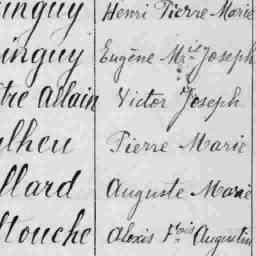 inguy Henri Pierre Marie
inguy Eugène M.ie Joseph
tre Allain Victor Joseph
lheu Pierre Marie
llard Auguste Marie
touche Alexis F.ois Augustin